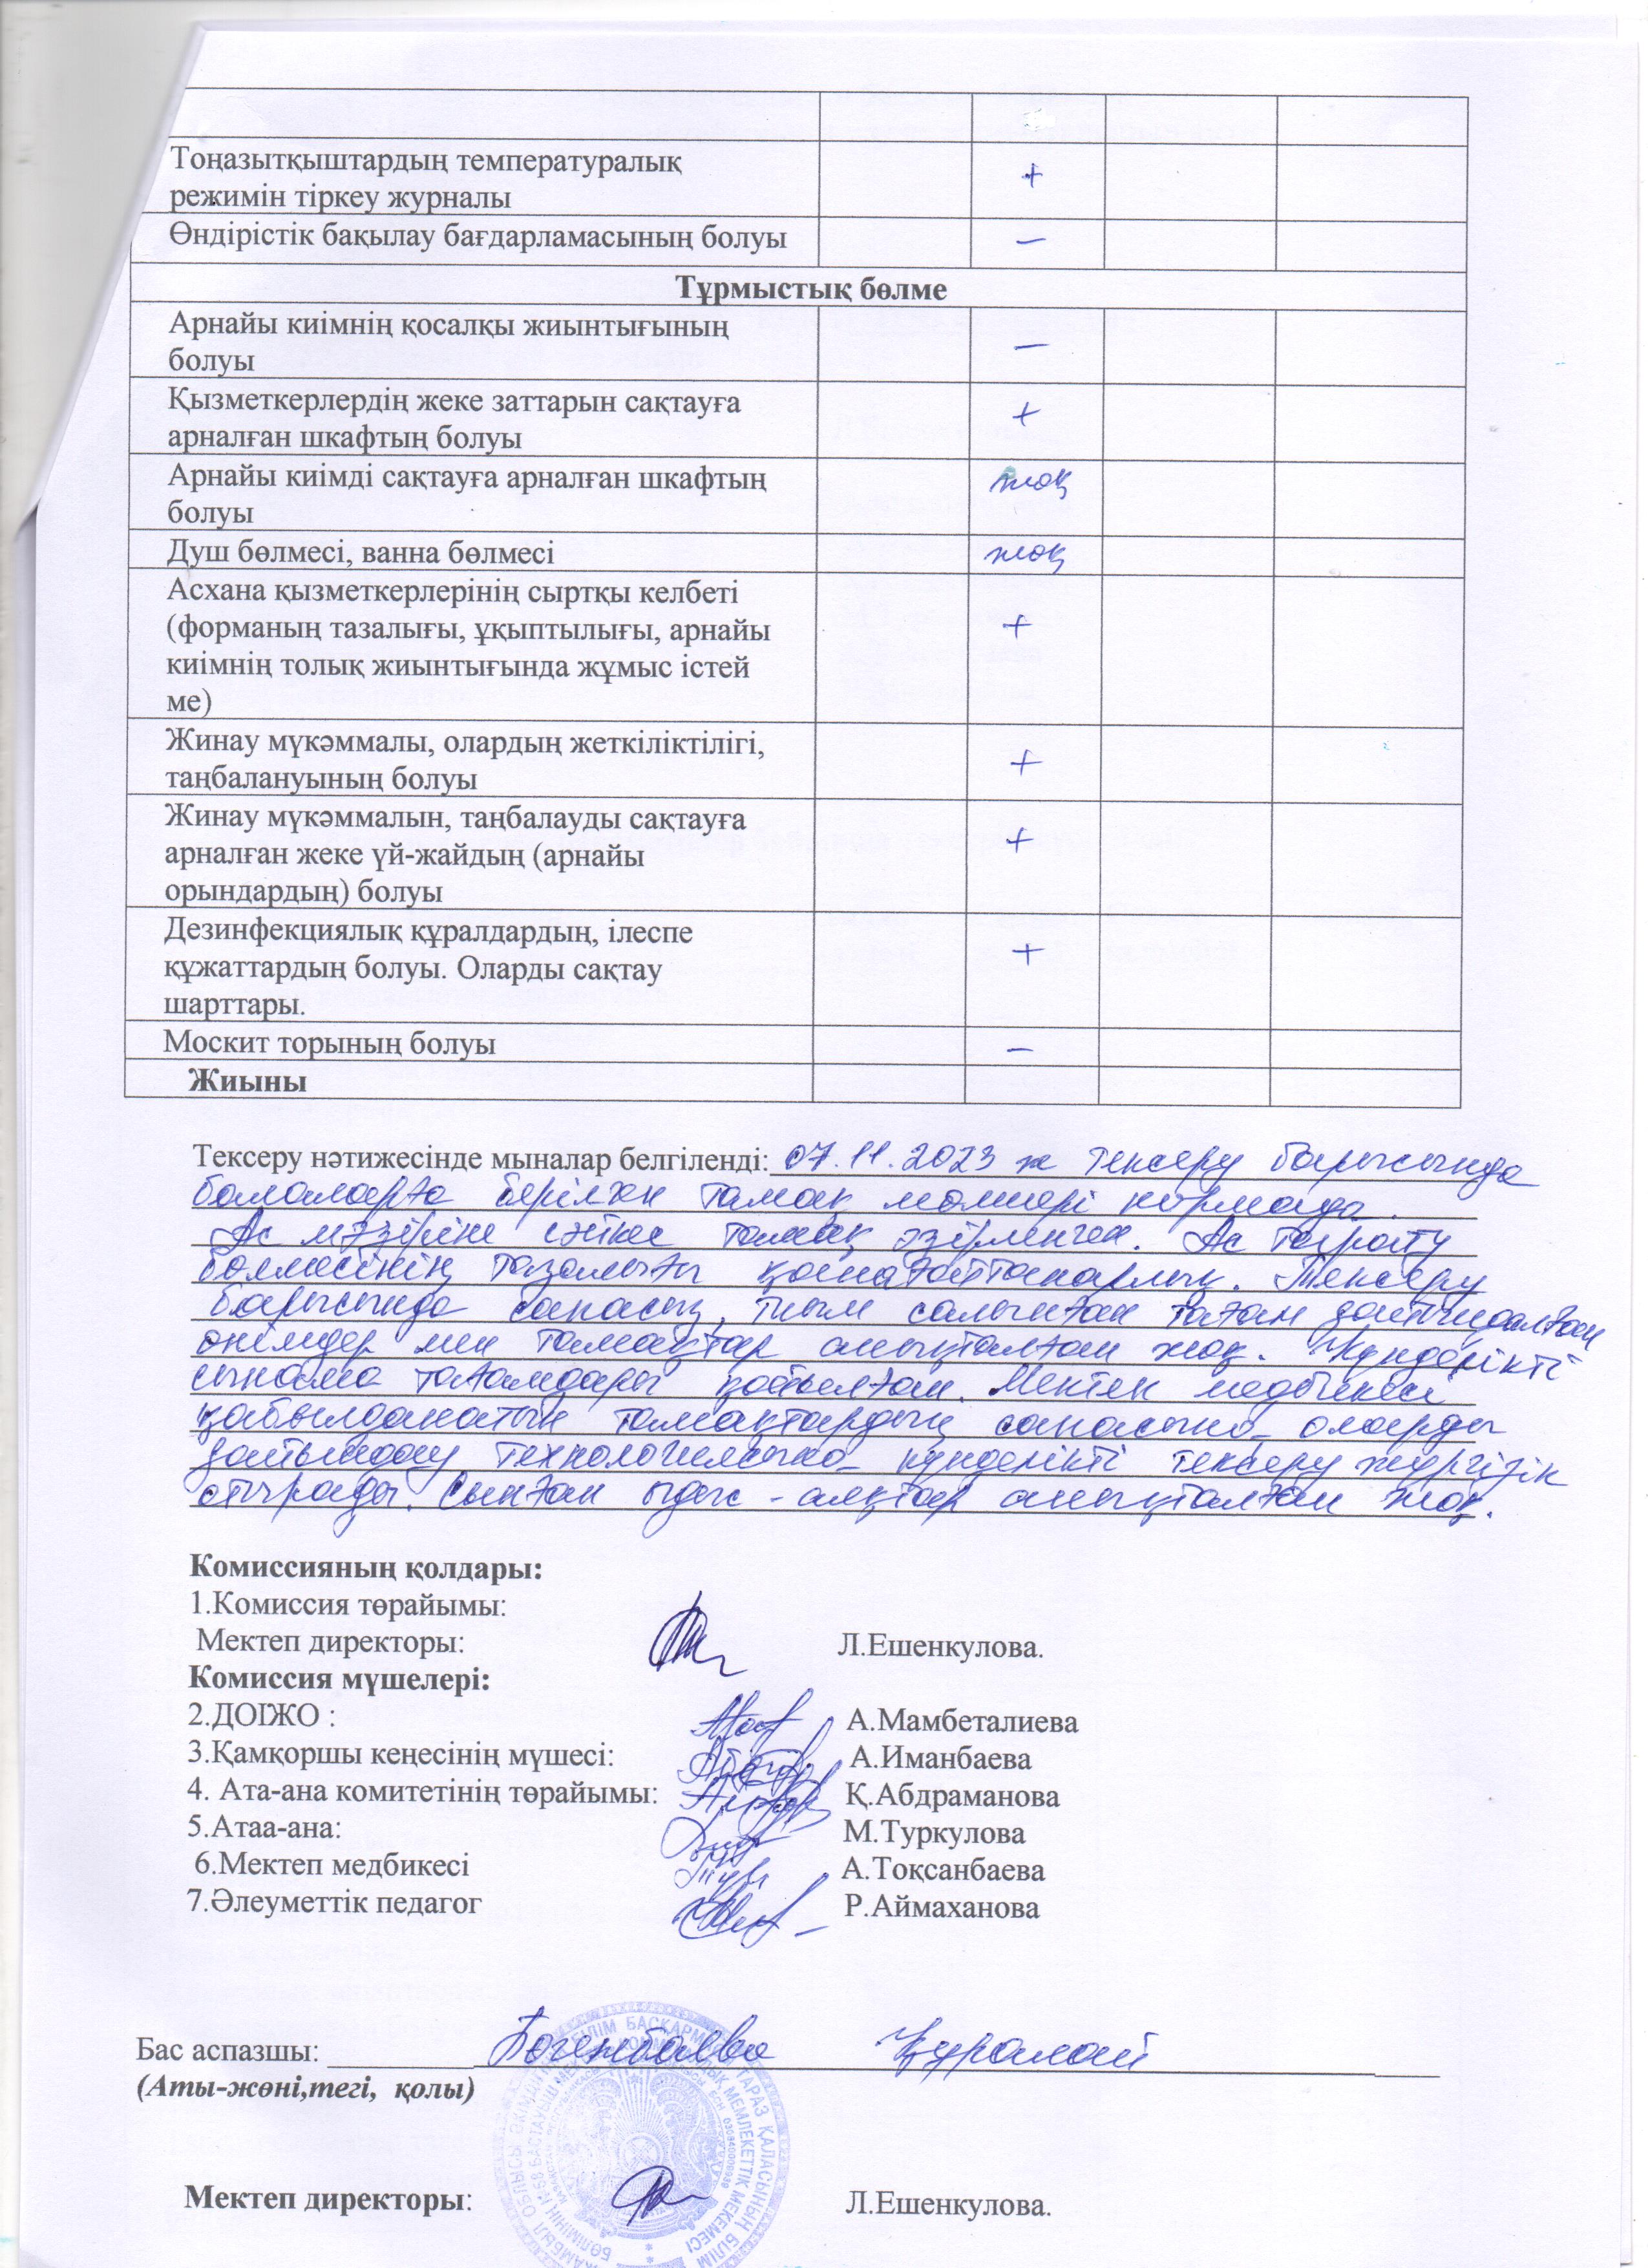 Тоңазытқыштардың температуралық
режимін тіркеу журналы +
Өндірістік бақылау бағдарламасының болуы –
Тұрмыстық бөлме
Арнайы киімнің қосалқы жиынтығының
болуы –
Қызметкерлердің жеке заттарын сақтауға
арналған шкафтың болуы +
Арнайы киімді сақтауға арналған шкафтың
болуы жоқ
Душ бөлмесі, ванна бөлмесі жоқ
Асхана қызметкерлерінің сыртқы келбеті
(форманың тазалығы, ұқыптылығы, арнайы
киімнің толық жиынтығында жұмыс істей
ме) +
Жинау мүкәммалы, олардың жеткіліктілігі,
таңбалануының болуы +
Жинау мүкәммалын, таңбалауды сақтауға
арналған жеке үй-жайдың (арнайы
орындардың) болуы +
Дезинфекциялық құралдардың, ілеспе
құжаттардың болуы. Оларды сақтау
шарттары. +
Москит торының болуы –
Жиыны
Тексеру нәтижесінде мыналар белгіленді: 07.11.2023 ж тексеру барысында
балаларға берілген тамақ мөлшері нормада.
Ас мәзіріне сәйкес тамақ әзірленген. Ас тағрату
бөлмесінің тазалығы қанағаттанарлық. Тексеру
барысында сапасыз, тыйым салынған тағам дайындалған
өнімдер мен тамақтар анықталған жоқ. Күнделікті
сынама тағамдары қойылған. Мектеп медбикесі
қабылданатын тамақтардың сапасына олардың
дайындау технологиясына күнделікті тексеру жүргізіп
отырады. Сынған ыдыс-аяқтар анықталған жоқ.
Комиссияның қолдары:
1.Комиссия төрайымы:
Мектеп директоры: Л.Ешенкулова.
Комиссия мүшелері:
2.ДОІЖО : А.Мамбеталиева
3.Қамқоршы кеңесінің мүшесі: А.Иманбаева
4. Ата-ана комитетінің төрайымы: Қ.Абдраманова
5.Атаа-ана: М.Туркулова
6.Мектеп медбикесі А.Тоқсанбаева
7.Әлеуметтік педагог Р.Аймаханова
Бас аспазшы: Бөгенбаева Құралай
(Аты-жөні,тегі, қолы)
Мектеп директоры: Л.Ешенкулова.